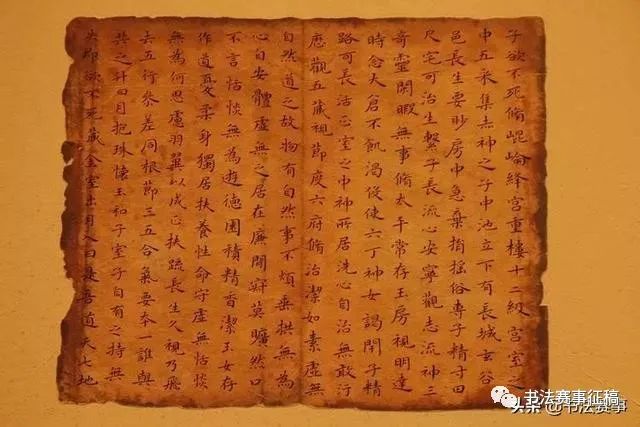 子欲不死脩崐崘絳宮重樓十二級宮室
中五采集赤神之子中池立下有長城玄谷
邑長生要眇房中急棄捐搖俗專子精寸田
尺宅可治生繫子長流心安寧觀志流神三
奇靈閑暇無事脩太平常存玉房視明達
時念大倉不飢渴役使六丁神女謁閉子精
路可長活正室之中神所居洗心自治無敢行
歷觀五藏視節度六府脩治潔如素虛無
自然道之故物有自然事不煩垂拱無為
心自安體虛無之居在廉間寂莫曠然口
不言恬惔無為遊德園積精香潔玉女存
作道憂柔身獨居扶養性命守虛無恬惔
無為何思慮羽翼以成正扶疏長生久視乃飛
去五行參差同根節三五合氣要本一誰與
共之升日月抱珠懷玉和子室子自有之持無
失即欲不死藏金室出月入日是吾道天七地
书法赛事征稿
头条@书法赛事